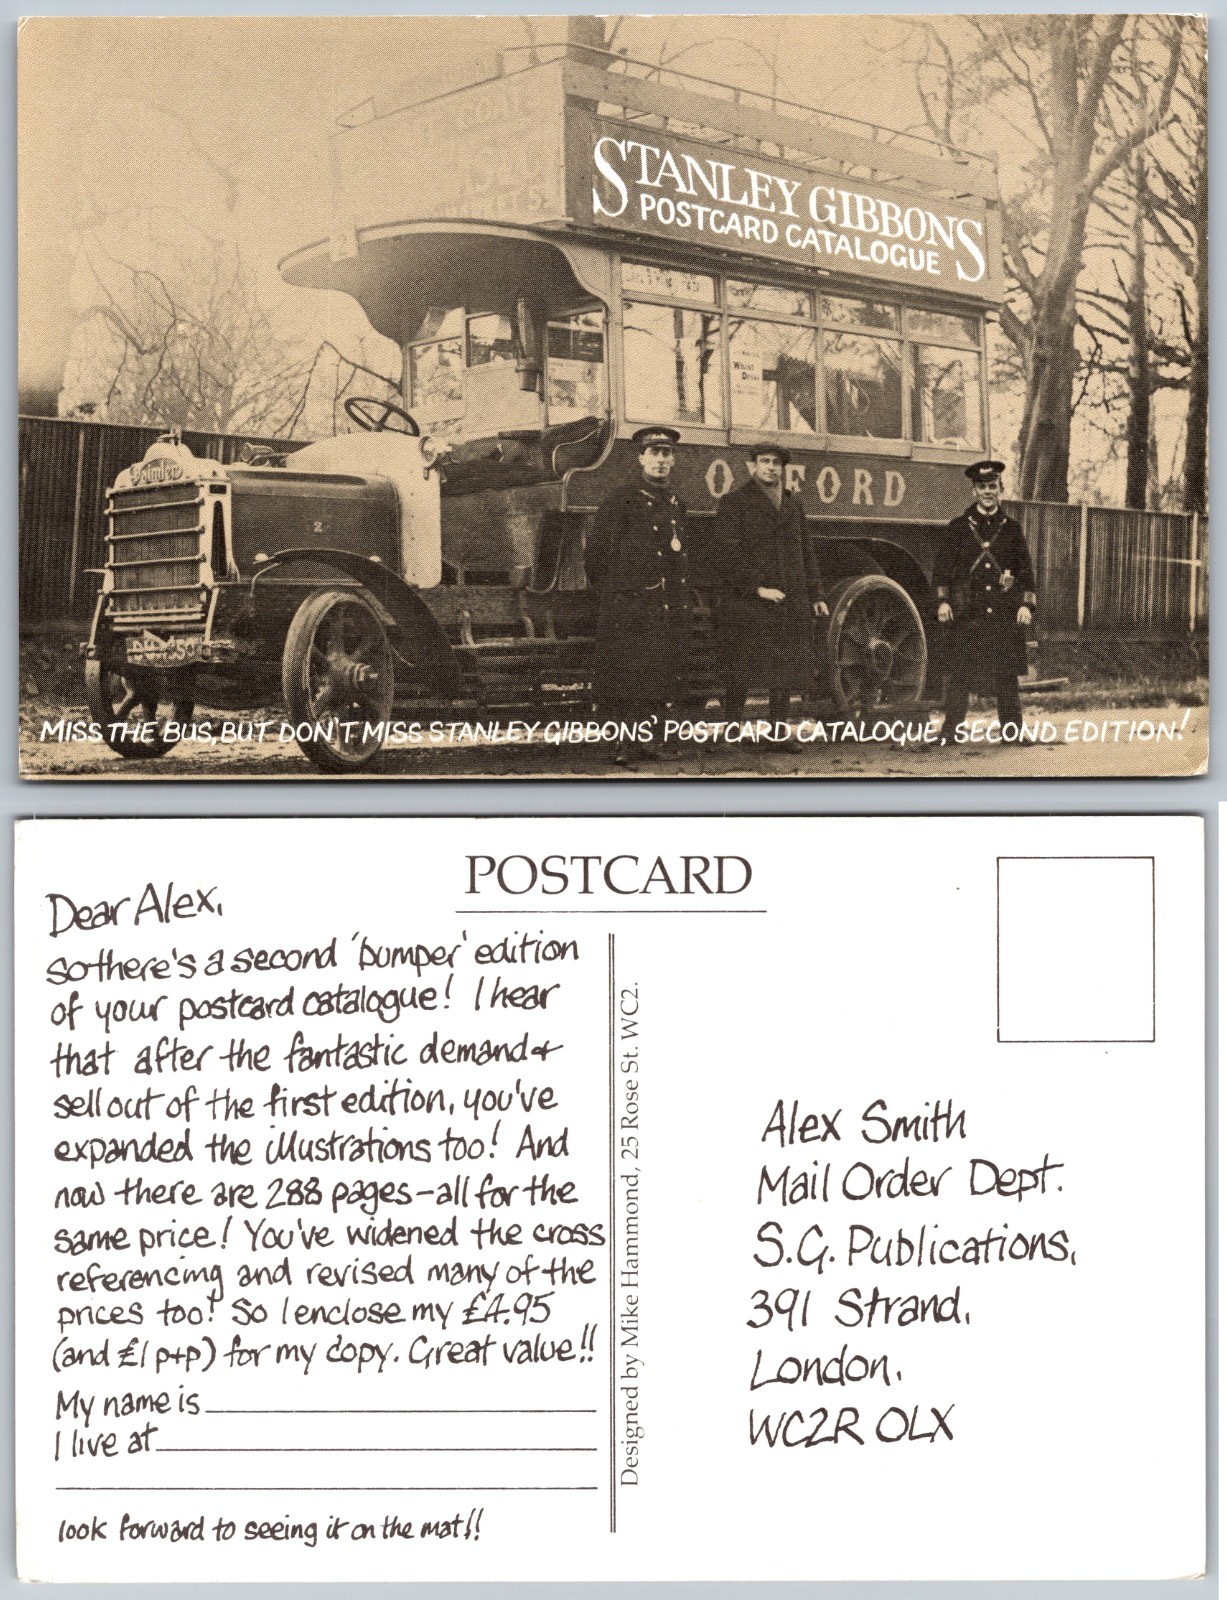 STANLEY GIBBONS
POSTCARD CATALOGUE
Whist
Drive
OXFORD
Daimler
2
2
MISS THE BUS, BUT DON'T MISS STANLEY GIBBONS' POSTCARD CATALOGUE, SECOND EDITION!
POSTCARD
Dear Alex,
So there's a second 'bumper' edition
of your postcard catalogue! I hear
that after the fantastic demand +
sell out of the first edition, you've
expanded the illustrations too! And
now there are 288 pages - all for the
same price! You've widened the cross
referencing and revised many of the
prices too! So I enclose my £4.95
(and £1 p+p) for my copy. Great value!!
My name is
I live at
look forward to seeing it on the mat!!
Designed by Mike Hammond, 25 Rose St. WC2.
Alex Smith
Mail Order Dept.
S.G. Publications,
391 Strand,
London.
WC2R OLX